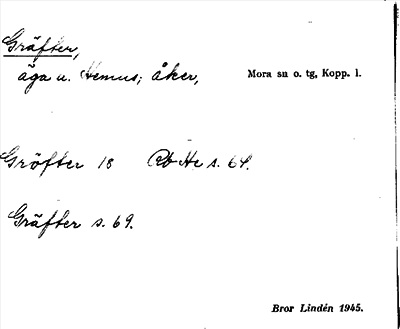 Gräfter,
äga u. Hemus; åker, Mora sn o. tg, Kopp. l.
Gröfter 18 Rb He s. 64.
Gräfter s. 69.
Bror Lindén 1945.